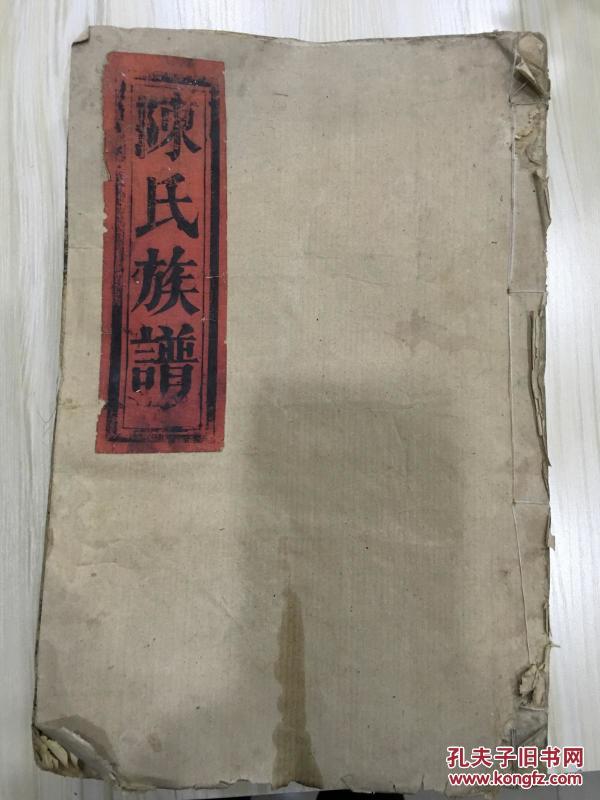 陳氏族譜
孔夫子旧书网
www.kongfz.com